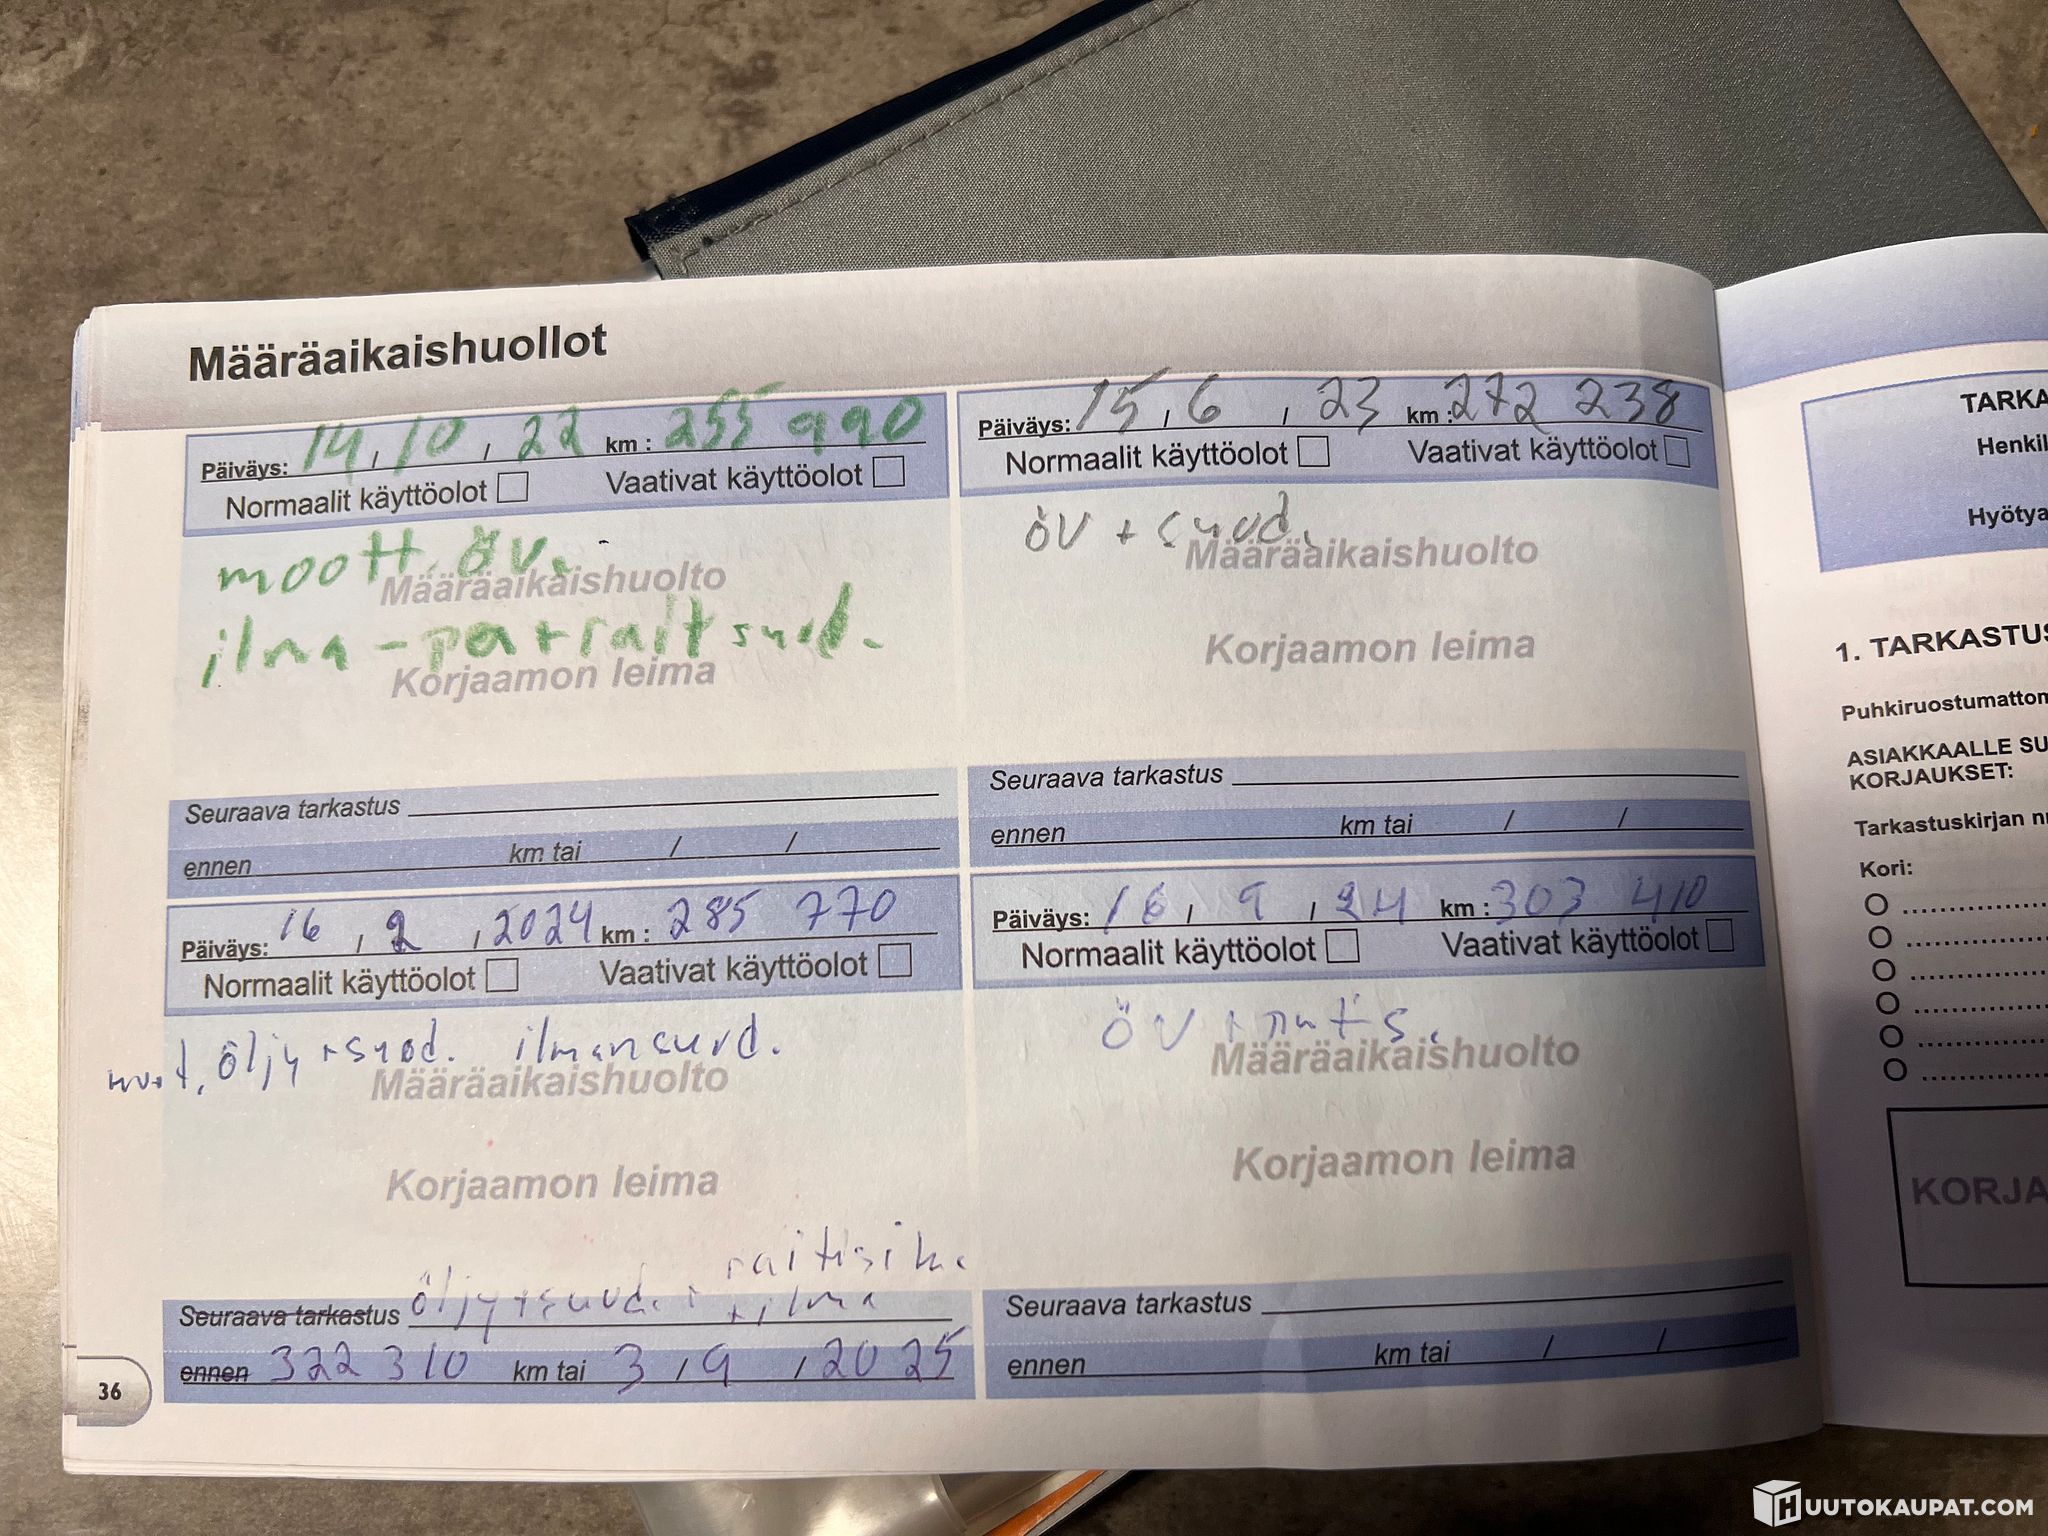 Määräaikaishuollot
Päiväys: 14, 10, 22 km: 255 990
Normaalit käyttöolot Vaativat käyttöolot
moott. öv.
Määräaikaishuolto
ilma - pa + rait suod.
Korjaamon leima
Seuraava tarkastus
ennen km tai / /
Päiväys: 15, 6, 23 km: 272 238
Normaalit käyttöolot Vaativat käyttöolot
öv + suod.
Määräaikaishuolto
Korjaamon leima
Seuraava tarkastus
ennen km tai / /
Päiväys: 16, 2, 2024 km: 285 770
Normaalit käyttöolot Vaativat käyttöolot
öljy + suod. ilmansuod.
Määräaikaishuolto
Korjaamon leima
raitisilm.
Seuraava tarkastus öljy + suod. + ilma
ennen 322 310 km tai 3/9/2025
Päiväys: 16, 9, 24 km: 303 410
Normaalit käyttöolot Vaativat käyttöolot
öv +
Määräaikaishuolto
Korjaamon leima
Seuraava tarkastus
ennen km tai / /
36
TARKA
Henkil
Hyötya
1. TARKASTUS
Puhkiruostumattom
ASIAKKAALLE SU
KORJAUKSET:
Tarkastuskirjan n
Kori:
KORJA
HUUTOKAUPAT.COM